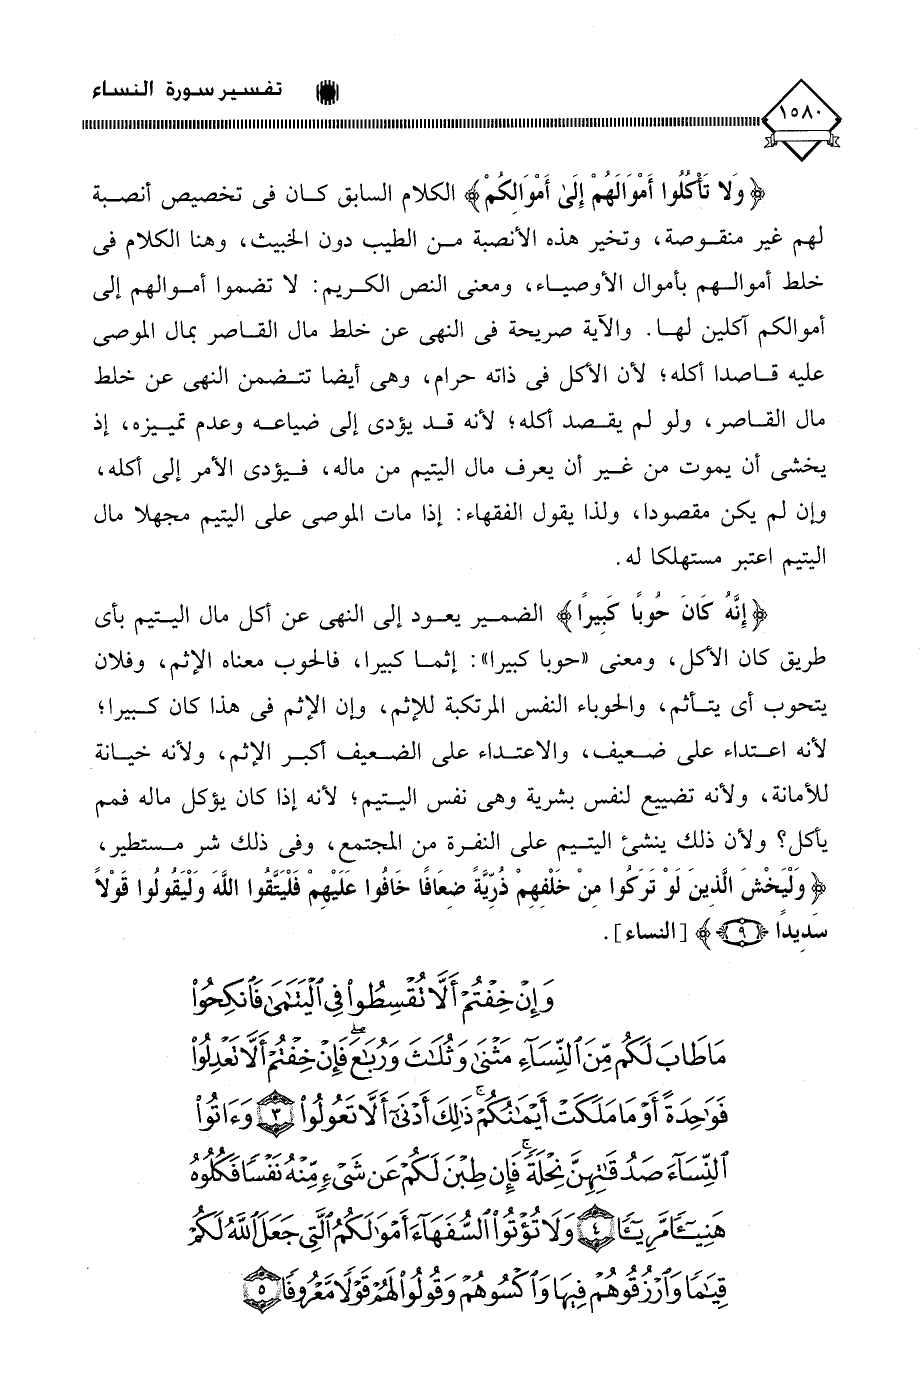 تفسير سورة النساء
١٥٨٠
﴿ وَلا تَأْكُلُوا أَمْوَالَهُمْ إِلَىٰ أَمْوَالِكُمْ ﴾ الكلام السابق كان فى تخصيص أنصبة
لهم غير منقوصة، وتخير هذه الأنصبة من الطيب دون الخبيث، وهنا الكلام فى
خلط أموالهم بأموال الأوصياء، ومعنى النص الكريم: لا تضموا أموالهم إلى
أموالكم آكلين لها. والآية صريحة فى النهى عن خلط مال القاصر بمال الموصى
عليه قاصدا أكله؛ لأن الأكل فى ذاته حرام، وهى أيضا تتضمن النهى عن خلط
مال القاصر، ولو لم يقصد أكله؛ لأنه قد يؤدى إلى ضياعه وعدم تميزه، إذ
يخشى أن يموت من غير أن يعرف مال اليتيم من ماله، فيؤدى الأمر إلى أكله،
وإن لم يكن مقصودا، ولذا يقول الفقهاء: إذا مات الموصى على اليتيم مجهلا مال
اليتيم اعتبر مستهلكا له.
﴿ إِنَّهُ كَانَ حُوبًا كَبِيرًا ﴾ الضمير يعود إلى النهى عن أكل مال اليتيم بأى
طريق كان الأكل، ومعنى «حوبا كبيرا»: إثما كبيرا، فالحوب معناه الإثم، وفلان
يتحوب أى يتأثم، والحوباء النفس المرتكبة للإثم، وإن الإثم فى هذا كان كبيرا؛
لأنه اعتداء على ضعيف، والاعتداء على الضعيف أكبر الإثم، ولأنه خيانة
للأمانة، ولأنه تضييع لنفس بشرية وهى نفس اليتيم؛ لأنه إذا كان يؤكل ماله فمم
يأكل؟ ولأن ذلك ينشئ اليتيم على النفرة من المجتمع، وفى ذلك شر مستطير،
﴿ وَلْيَخْشَ الَّذِينَ لَوْ تَرَكُوا مِنْ خَلْفِهِمْ ذُرِّيَّةً ضِعَافًا خَافُوا عَلَيْهِمْ فَلْيَتَّقُوا اللَّهَ وَلْيَقُولُوا قَوْلاً
سَدِيدًا ﴿٩﴾ ﴾ [النساء].
وَإِنْ خِفْتُمْ أَلَّا تُقْسِطُوا۟ فِى ٱلْيَتَـٰمَىٰ فَٱنكِحُوا۟
مَا طَابَ لَكُم مِّنَ ٱلنِّسَآءِ مَثْنَىٰ وَثُلَـٰثَ وَرُبَـٰعَ ۖ فَإِنْ خِفْتُمْ أَلَّا تَعْدِلُوا۟
فَوَٰحِدَةً أَوْ مَا مَلَكَتْ أَيْمَـٰنُكُمْ ۚ ذَٰلِكَ أَدْنَىٰٓ أَلَّا تَعُولُوا۟ ﴿٣﴾ وَءَاتُوا۟
ٱلنِّسَآءَ صَدُقَـٰتِهِنَّ نِحْلَةً ۚ فَإِن طِبْنَ لَكُمْ عَن شَىْءٍ مِّنْهُ نَفْسًا فَكُلُوهُ
هَنِيٓـًٔا مَّرِيٓـًٔا ﴿٤﴾ وَلَا تُؤْتُوا۟ ٱلسُّفَهَآءَ أَمْوَٰلَكُمُ ٱلَّتِى جَعَلَ ٱللَّهُ لَكُمْ
قِيَـٰمًا وَٱرْزُقُوهُمْ فِيهَا وَٱكْسُوهُمْ وَقُولُوا۟ لَهُمْ قَوْلًا مَّعْرُوفًا ﴿٥﴾